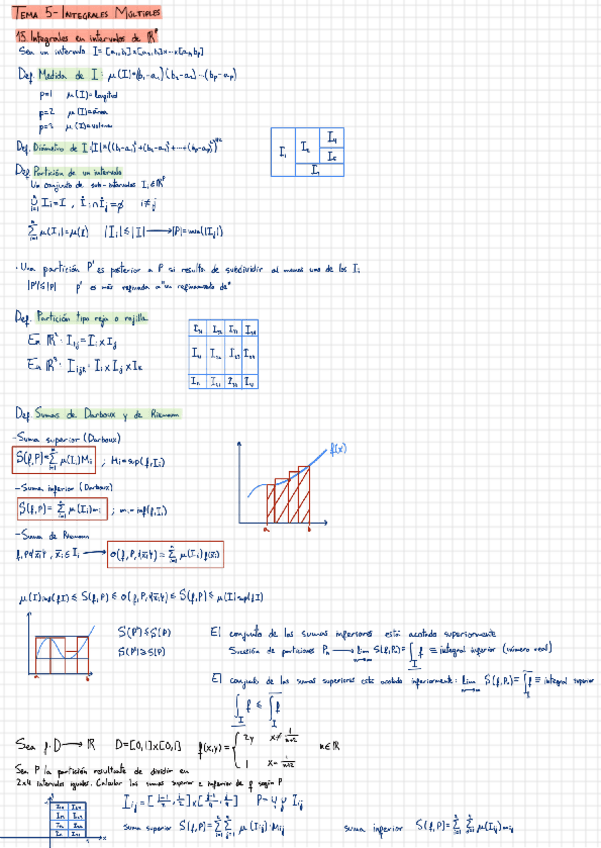 TEMA 5-INTEGRALES MÚLTIPLES
15. Integrales en intervalos de ℝᵖ
Sea un intervalo I=[a₁,b₁]x[a₂,b₂]x···x[aₚ,bₚ]
Def. Medida de I: μ(I)=(b₁-a₁)(b₂-a₂)···(bₚ-aₚ)
p=1 μ(I)=longitud
p=2 μ(I)=área
p=3 μ(I)=volumen
Def. Diámetro de I: |I|=((b₁-a₁)²+(b₂-a₂)²+···+(bₚ-aₚ)²)^1/2
Def. Partición de un intervalo
Un conjunto de sub-intervalos Iᵢ∈ℝᵖ
∪ Iᵢ=I , İᵢ∩İⱼ=∅ i≠j
Σ μ(Iᵢ)=μ(I) |Iᵢ|≤|I| → |P|=max(|Iⱼ|)
· Una partición P' es posterior a P si resulta de subdividir al menos uno de los Iᵢ
|P'|≤|P| P' es más refinada o "un refinamiento de"
Def. Partición tipo reja o rejilla
En ℝ²: Iᵢⱼ=Iᵢ x Iⱼ
En ℝ³: Iᵢⱼₖ=Iᵢ x Iⱼ x Iₖ
Def. Sumas de Darboux y de Riemann
-Suma superior (Darboux)
S(f,P)=Σ μ(Iᵢ)Mᵢ ; Mᵢ=sup(f,Iᵢ)
f(x)
-Suma inferior (Darboux)
S(f,P)=Σ μ(Iᵢ)mᵢ ; mᵢ=inf(f,Iᵢ)
a b
-Suma de Riemann
σ(f,P,{x̄ᵢ})=Σ μ(Iᵢ)f(x̄ᵢ)
μ(I)inf(f,I) ≤ S(f,P) ≤ σ(f,P,{x̄ᵢ}) ≤ S(f,P) ≤ μ(I)sup(f,I)
S(P')≤S(P)
S(P')≥S(P)
a b
El conjunto de las sumas inferiores está acotado superiormente
Sucesión de particiones Pₙ → lim S(f,Pₙ)=∫ f ≡ integral inferior (número real)
El conjunto de las sumas superiores está acotado inferiormente: lim S(f,Pₙ)=∫ f ≡ integral superior
∫ f ≤ ∫ f
Sea f: D → ℝ D=[0,1]x[0,1]
Sea P la partición resultante de dividir en
2x4 intervalos iguales. Calcular las sumas superior e inferior de f según P
suma superior S(f,P)=Σ Σ μ(Iᵢⱼ)·Mᵢⱼ
suma inferior S(f,P)=Σ Σ μ(Iᵢⱼ)mᵢⱼ